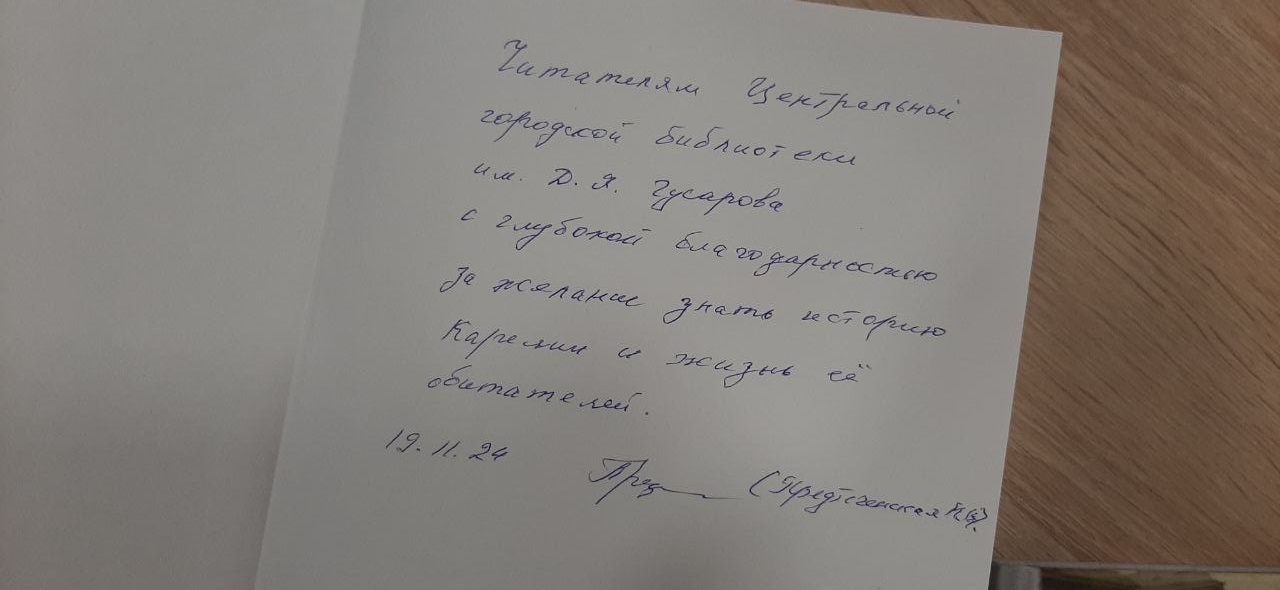 Читателям Центральной
городской библиотеки
им. Д. Я. Гусарова
с глубокой благодарностью
за желание знать историю
Карелии и жизнь её
обитателей.
19.11.24 (Предтеченская